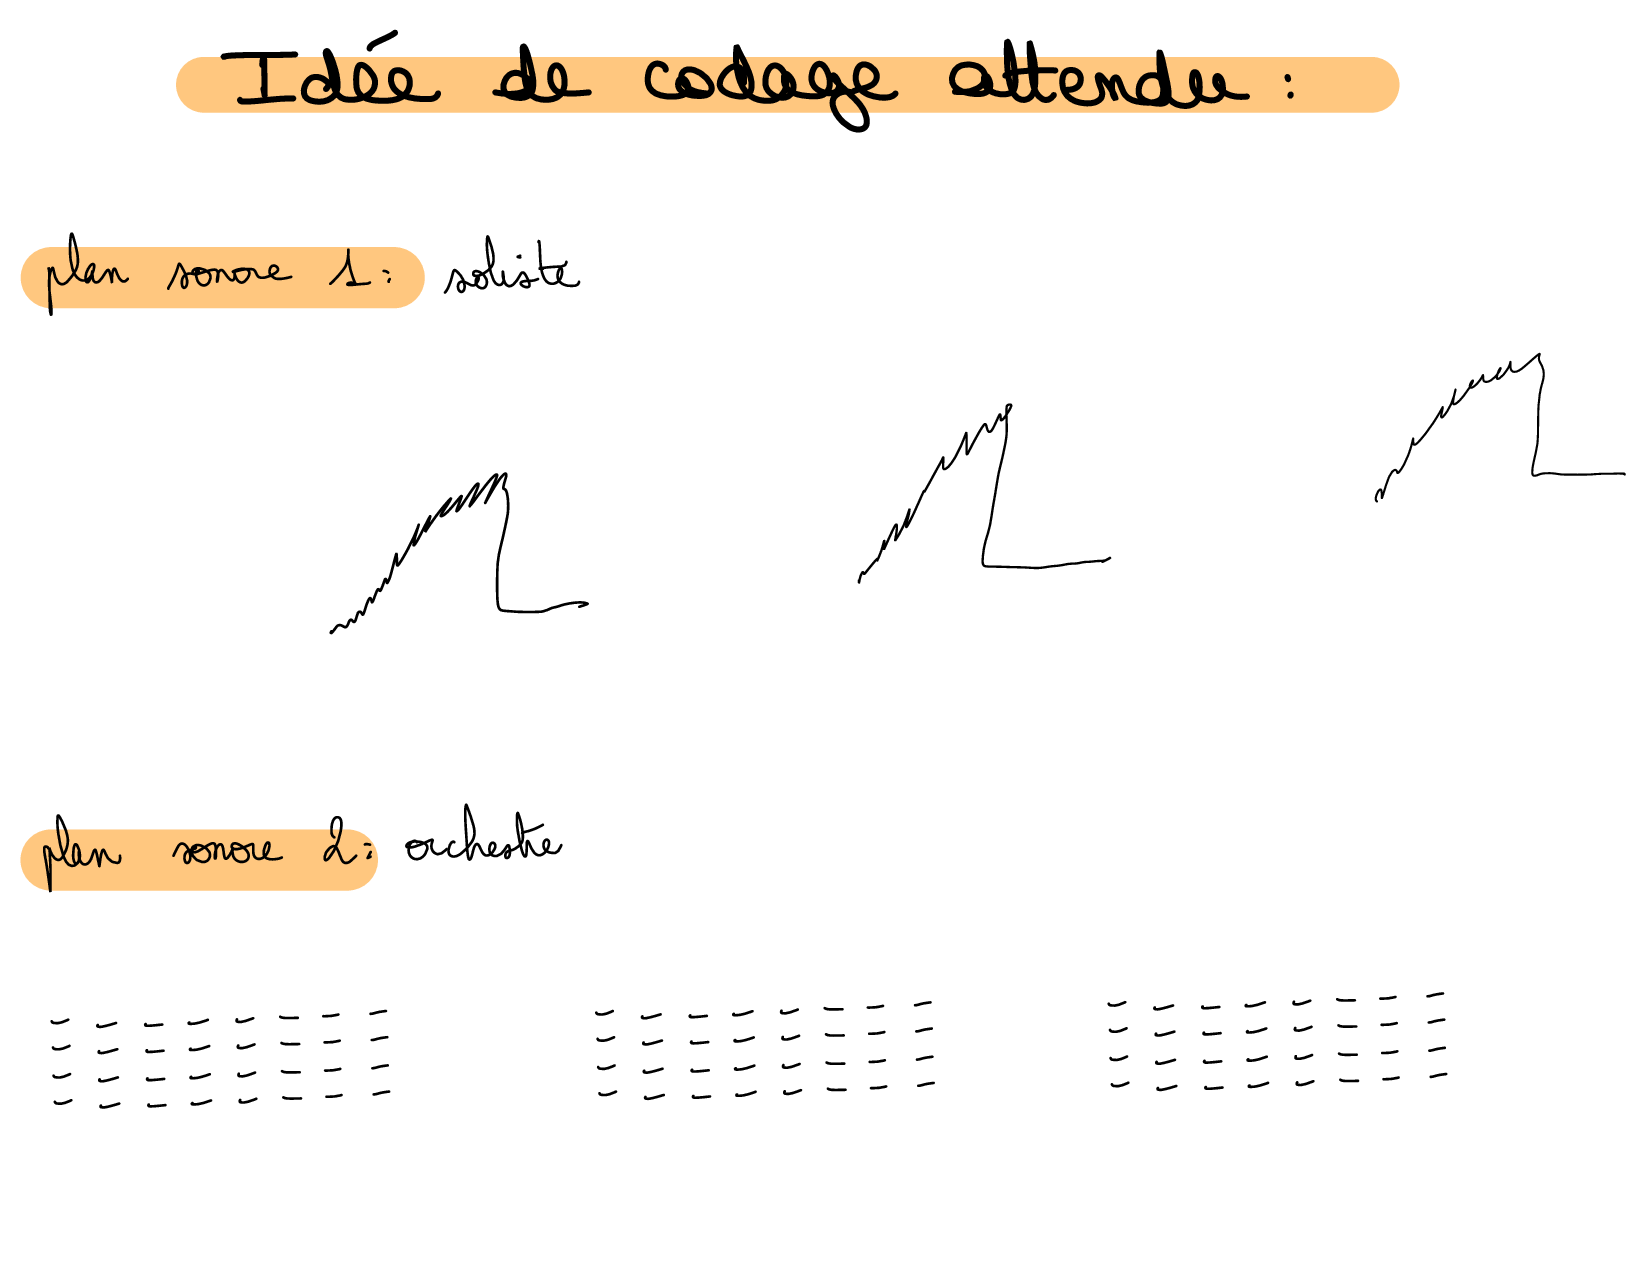 Idée de codage attendu :
plan sonore 1 : soliste
plan sonore 2 : orchestre